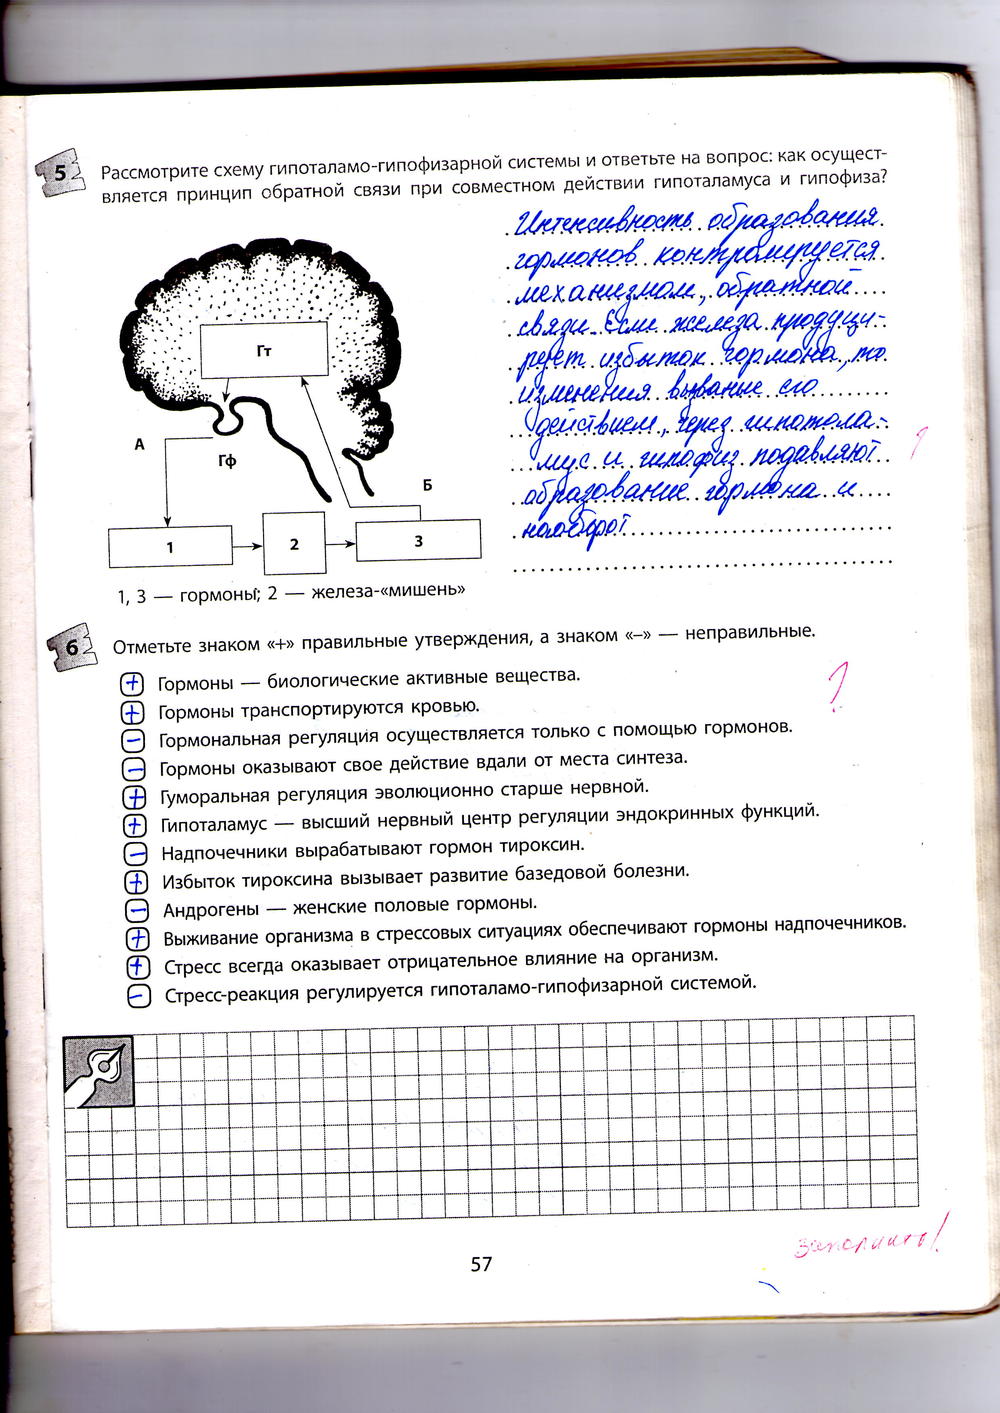 5
Рассмотрите схему гипоталамо-гипофизарной системы и ответьте на вопрос: как осущест-
вляется принцип обратной связи при совместном действии гипоталамуса и гипофиза?
Интенсивность образования
гормонов контролируется
механизмом, обратной
связи. Если железа продуци-
рует избыток гормона, то
изменения вызваные его
действием, через гипотола-
мус и гипофиз подавляют
образование гормона и
наоборот
Гт
А
Гф
Б
1
2
3
1, 3 — гормоны; 2 — железа-«мишень»
6
Отметьте знаком «+» правильные утверждения, а знаком «–» — неправильные.
+ Гормоны — биологические активные вещества.
+ Гормоны транспортируются кровью.
– Гормональная регуляция осуществляется только с помощью гормонов.
– Гормоны оказывают свое действие вдали от места синтеза.
+ Гуморальная регуляция эволюционно старше нервной.
+ Гипоталамус — высший нервный центр регуляции эндокринных функций.
– Надпочечники вырабатывают гормон тироксин.
+ Избыток тироксина вызывает развитие базедовой болезни.
– Андрогены — женские половые гормоны.
+ Выживание организма в стрессовых ситуациях обеспечивают гормоны надпочечников.
+ Стресс всегда оказывает отрицательное влияние на организм.
– Стресс-реакция регулируется гипоталамо-гипофизарной системой.
57